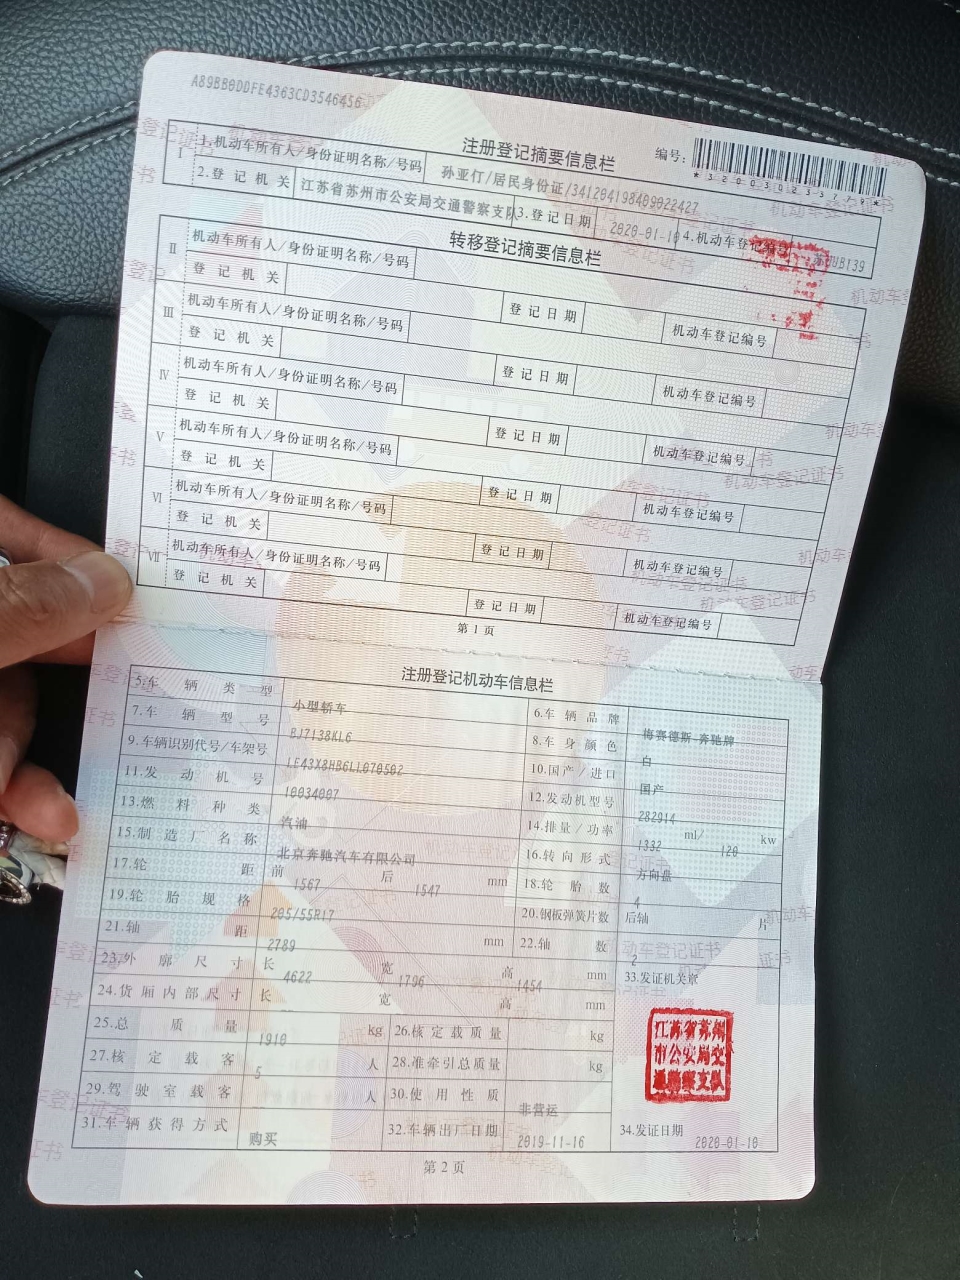 A89BB0DDFE4363CD3546456
注册登记摘要信息栏
编号:
I
1.机动车所有人/身份证明名称/号码
孙亚仃/居民身份证/341204198409022427
2.登记机关
江苏省苏州市公安局交通警察支队
3.登记日期
2020-01-10
4.机动车登记编号
转移登记摘要信息栏
II 机动车所有人/身份证明名称/号码
登记机关 登记日期 机动车登记编号
III 机动车所有人/身份证明名称/号码
登记机关 登记日期 机动车登记编号
IV 机动车所有人/身份证明名称/号码
登记机关 登记日期 机动车登记编号
V 机动车所有人/身份证明名称/号码
登记机关 登记日期 机动车登记编号
VI 机动车所有人/身份证明名称/号码
登记机关 登记日期 机动车登记编号
VII 机动车所有人/身份证明名称/号码
登记机关 登记日期 机动车登记编号
第1页
注册登记机动车信息栏
5.车辆类型 小型轿车 6.车辆品牌 梅赛德斯-奔驰牌
7.车辆型号 BJ7138KL6 8.车身颜色 白
9.车辆识别代号/车架号 LE43X8HB6LL070502 10.国产/进口 国产
11.发动机号 10034007 12.发动机型号 282914
13.燃料种类 汽油 14.排量/功率 1332 ml/ 120 kw
15.制造厂名称 北京奔驰汽车有限公司 16.转向形式 方向盘
17.轮距 前 1567 后 1547 mm 18.轮胎数 4
19.轮胎规格 205/55R17 20.钢板弹簧片数 后轴 片
21.轴距 2789 mm 22.轴数 2
23.外廓尺寸 长 4622 宽 1796 高 1454 mm 33.发证机关章
24.货厢内部尺寸 长 宽 高 mm
25.总质量 1910 kg 26.核定载质量 kg
27.核定载客 5 人 28.准牵引总质量 kg
29.驾驶室载客 人 30.使用性质 非营运
31.车辆获得方式 购买 32.车辆出厂日期 2019-11-16 34.发证日期 2020-01-10
江苏省苏州
市公安局交
通警察支队
第2页